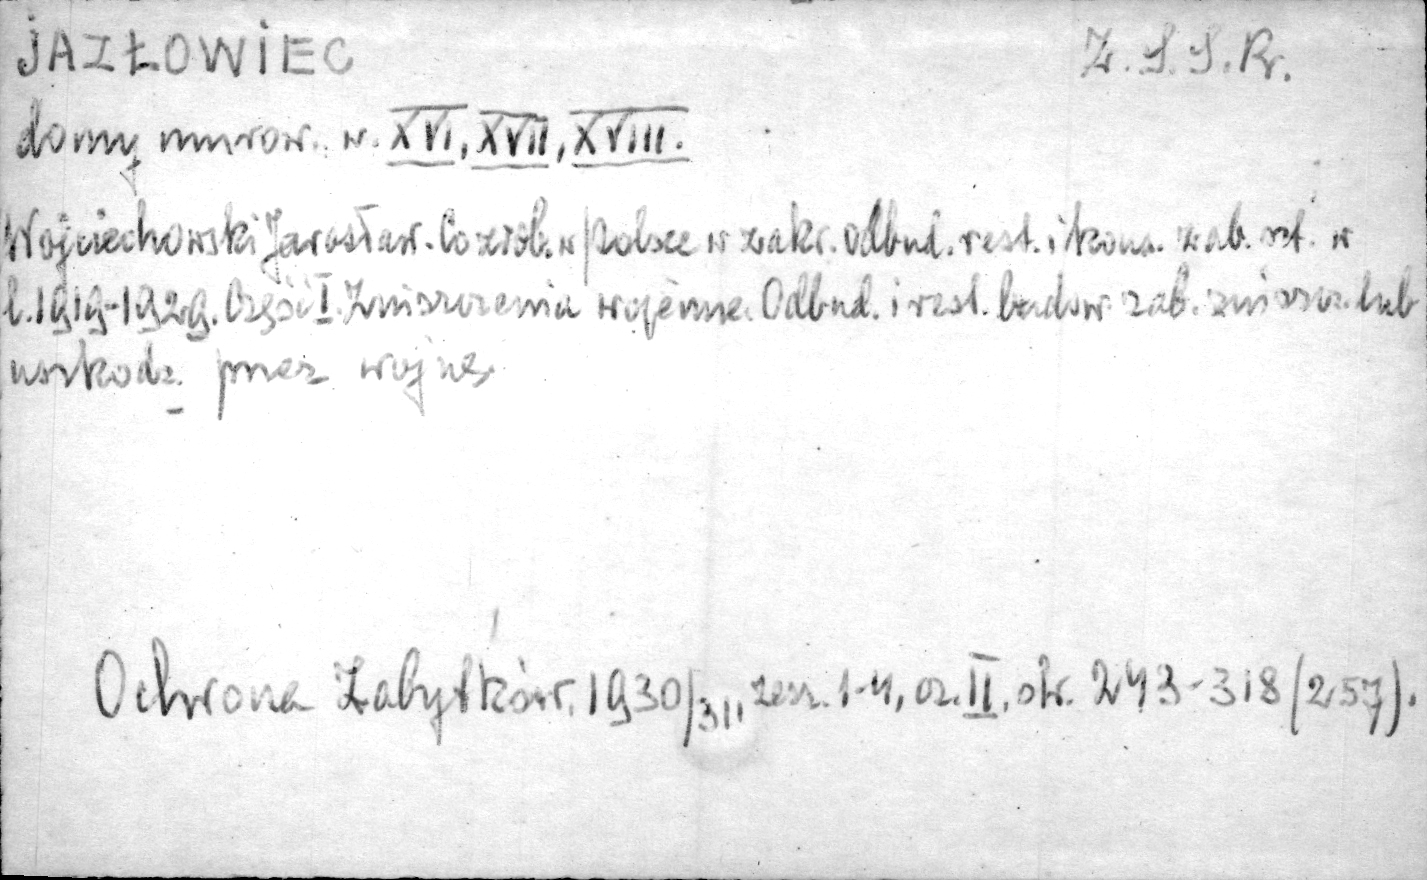 JAZŁOWIEC
Z.S.S.R.
domy murow. w. XVI, XVII, XVIII.
Wojciechowski Jarosław. Co zrob. w Polsce w zakr. odbud. rest. i kons. zab. szt. w
l. 1919-1929. Część I. Zniszczenia wojenne. Odbud. i rest. budow. zab. zniszcz. lub
uszkodz. przez wojnę.
Ochrona Zabytków. 1930/31, zesz. 1-4, cz. II, str. 243-318 (257).